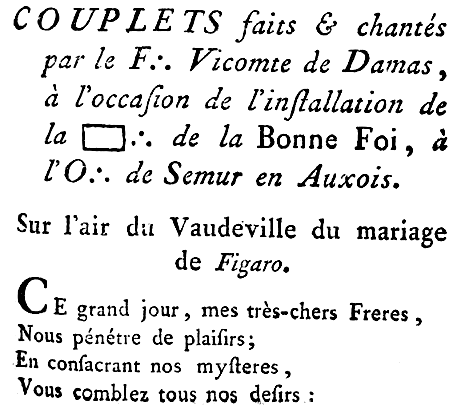 COUPLETS faits & chantés
par le F.·. Vicomte de Damas,
à l'occaſion de l'inſtallation de
la ▭.·. de la Bonne Foi, à
l'O.·. de Semur en Auxois.
Sur l'air du Vaudeville du mariage
de Figaro.
CE grand jour, mes très-chers Freres,
Nous pénétre de plaiſirs;
En conſacrant nos myſteres,
Vous comblez tous nos deſirs: